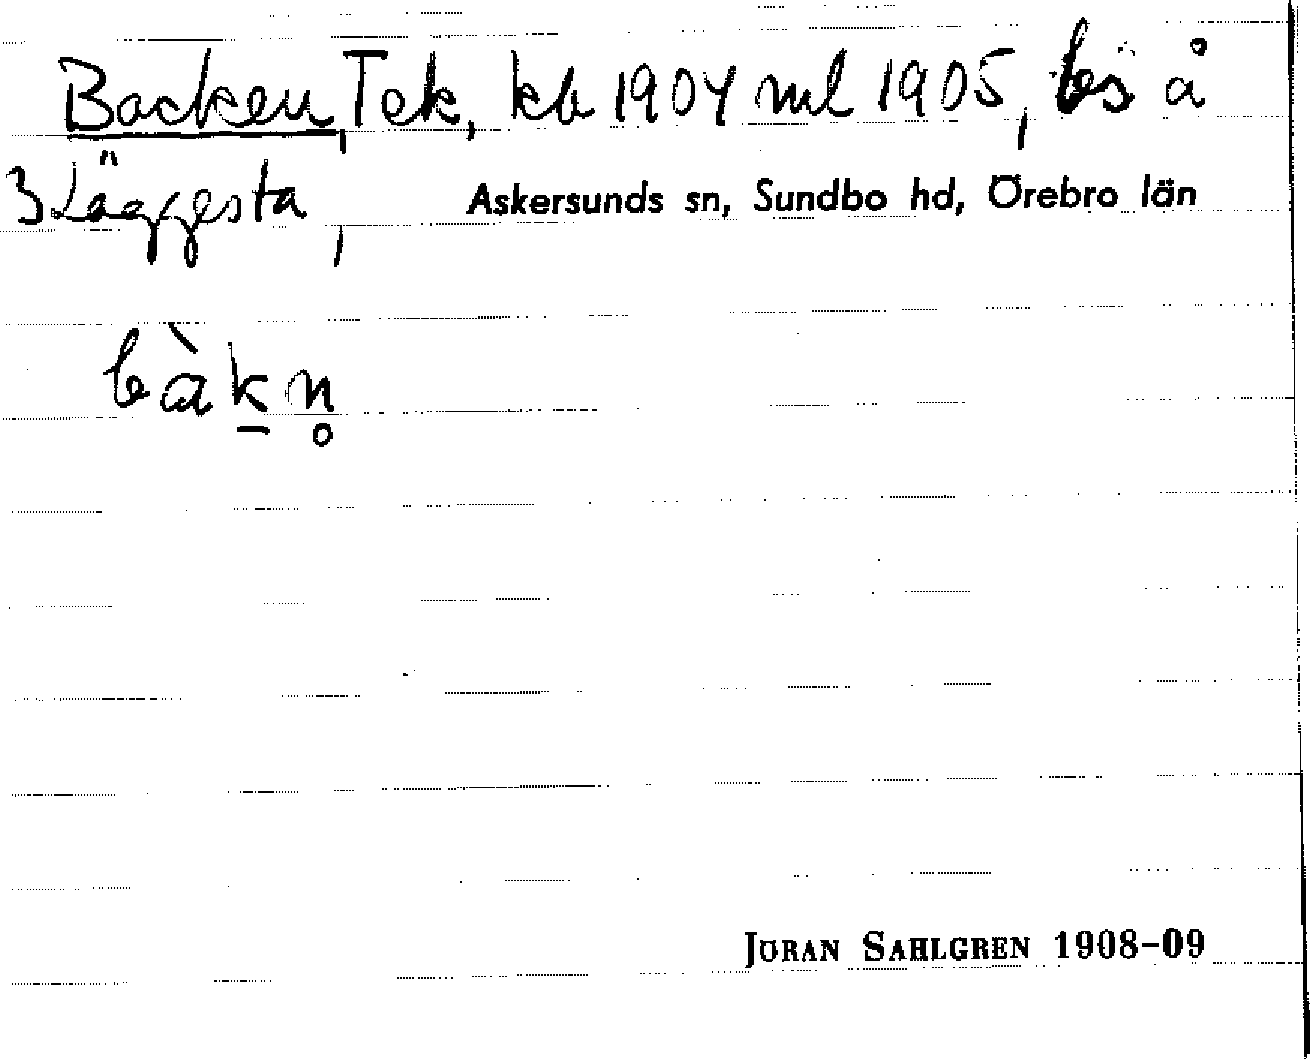 Backen, Tek, kb 1904 ml 1905, bs å
3 Läggesta, Askersunds sn, Sundbo hd, Örebro län
bàk̠n̥
JÖRAN SAHLGREN 1908-09